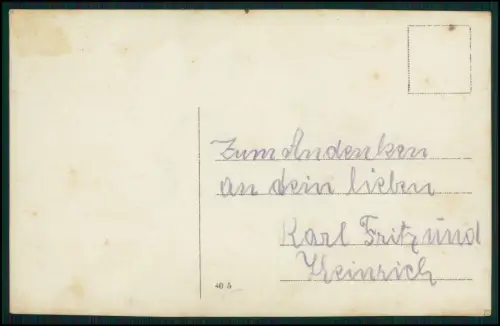 Zum Andenken
an dein lieben
Karl Fritz und
Heinrich
40 5